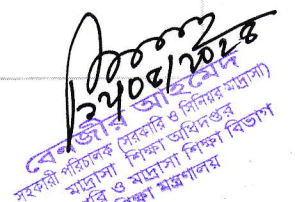 ২৫/০৪/২০২৪
বেনজীর আহমেদ
সহকারী পরিচালক (সরকারি ও সিনিয়র মাদ্রাসা)
মাদ্রাসা শিক্ষা অধিদপ্তর
ও মাদ্রাসা শিক্ষা বিভাগ
শিক্ষা মন্ত্রণালয়